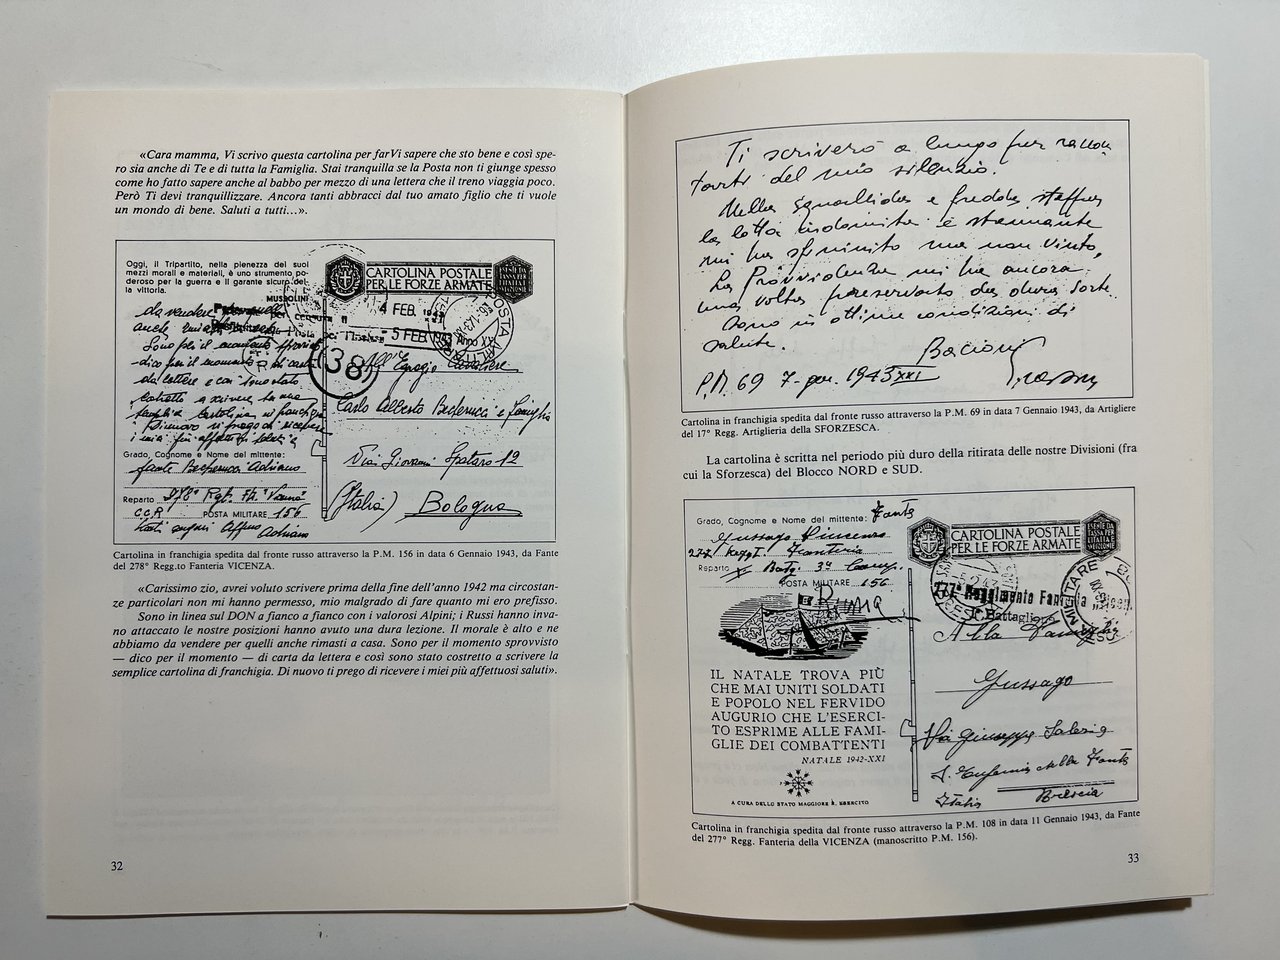 «Cara mamma, Vi scrivo questa cartolina per farVi sapere che sto bene e così spe-
ro sia anche di Te e di tutta la Famiglia. Stai tranquilla se la Posta non ti giunge spesso
come ho fatto sapere anche al babbo per mezzo di una lettera che il treno viaggia poco.
Però Ti devi tranquillizzare. Ancora tanti abbracci dal tuo amato figlio che ti vuole
un mondo di bene. Saluti a tutti...».
Oggi, il Tripartito, nella pienezza dei suoi
mezzi morali e materiali, è uno strumento po-
deroso per la guerra e il garante sicuro del-
la vittoria.
MUSSOLINI
CARTOLINA POSTALE
PER LE FORZE ARMATE
4 FEB.
5 FEB.
Anno XXI
38
da vendere
anche
Sono per il momento sprovvisto
dico per il momento di carta
da lettere e così sono stato
costretto a scrivere la
semplice cartolina in franchigia
Di nuovo ti prego di ricevere
i miei più affettuosi saluti
All'Egregio
Carlo Alberto e Famiglia
Via Giovanni Spataro 12
(Italia) Bologna
Grado, Cognome e Nome del mittente:
Fante Adriano
Reparto 278° Rgt. Ftr.
C.C.R POSTA MILITARE 156
Adriano
Cartolina in franchigia spedita dal fronte russo attraverso la P.M. 156 in data 6 Gennaio 1943, da Fante
del 278° Regg.to Fanteria VICENZA.
«Carissimo zio, avrei voluto scrivere prima della fine dell'anno 1942 ma circostan-
ze particolari non mi hanno permesso, mio malgrado di fare quanto mi ero prefisso.
Sono in linea sul DON a fianco a fianco con i valorosi Alpini; i Russi hanno inva-
no attaccato le nostre posizioni hanno avuto una dura lezione. Il morale è alto e ne
abbiamo da vendere per quelli anche rimasti a casa. Sono per il momento sprovvisto
— dico per il momento — di carta da lettera e così sono stato costretto a scrivere la
semplice cartolina di franchigia. Di nuovo ti prego di ricevere i miei più affettuosi saluti».
32
Ti scriverò a lungo per raccon
tarti del mio silenzio.
Nella squallida e fredda steppa
la lotta indomita e stremante
mi ha sfinito ma non vinto,
La Provvidenza mi ha ancora
una volta preservato da dura sorte.
Sono in ottime condizioni di
salute.
Bacioni
P.M. 69 7-gen. 1943 XXI
Cartolina in franchigia spedita dal fronte russo attraverso la P.M. 69 in data 7 Gennaio 1943, da Artigliere
del 17° Regg. Artiglieria della SFORZESCA.
La cartolina è scritta nel periodo più duro della ritirata delle nostre Divisioni (fra
cui la Sforzesca) del Blocco NORD e SUD.
Grado, Cognome e Nome del mittente: Fante
Gussago Vincenzo
277 Reggt. Fanteria
Reparto Batg. 3ª Comp.
POSTA MILITARE 156
Russia
CARTOLINA POSTALE
PER LE FORZE ARMATE
277° Reggimento Fanteria
Battaglione
Alla Famiglia
Gussago
Via Giuseppe
S. Eufemia della Fonte
Italia Brescia
IL NATALE TROVA PIÙ
CHE MAI UNITI SOLDATI
E POPOLO NEL FERVIDO
AUGURIO CHE L'ESERCI-
TO ESPRIME ALLE FAMI-
GLIE DEI COMBATTENTI
NATALE 1942-XXI
A CURA DELLO STATO MAGGIORE R. ESERCITO
Cartolina in franchigia spedita dal fronte russo attraverso la P.M. 108 in data 11 Gennaio 1943, da Fante
del 277° Regg. Fanteria della VICENZA (manoscritto P.M. 156).
33